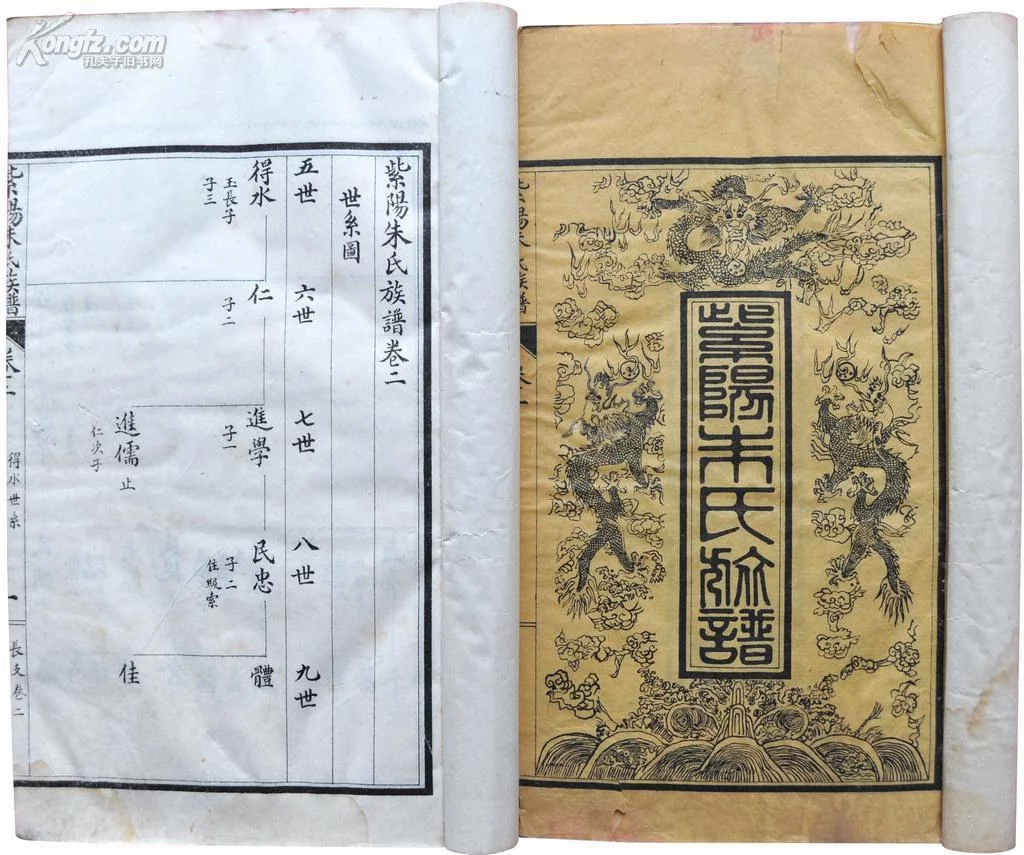 Kongfz.com
孔夫子旧书网
紫陽朱氏族譜
紫陽朱氏族譜卷二
世系圖
五世
六世
七世
八世
九世
得水
玉長子
子三
仁
子二
進學
子一
民忠
子二
體
進儒 止
仁次子
佳
紫陽朱氏族譜
卷二
得水世系
一
長支卷二